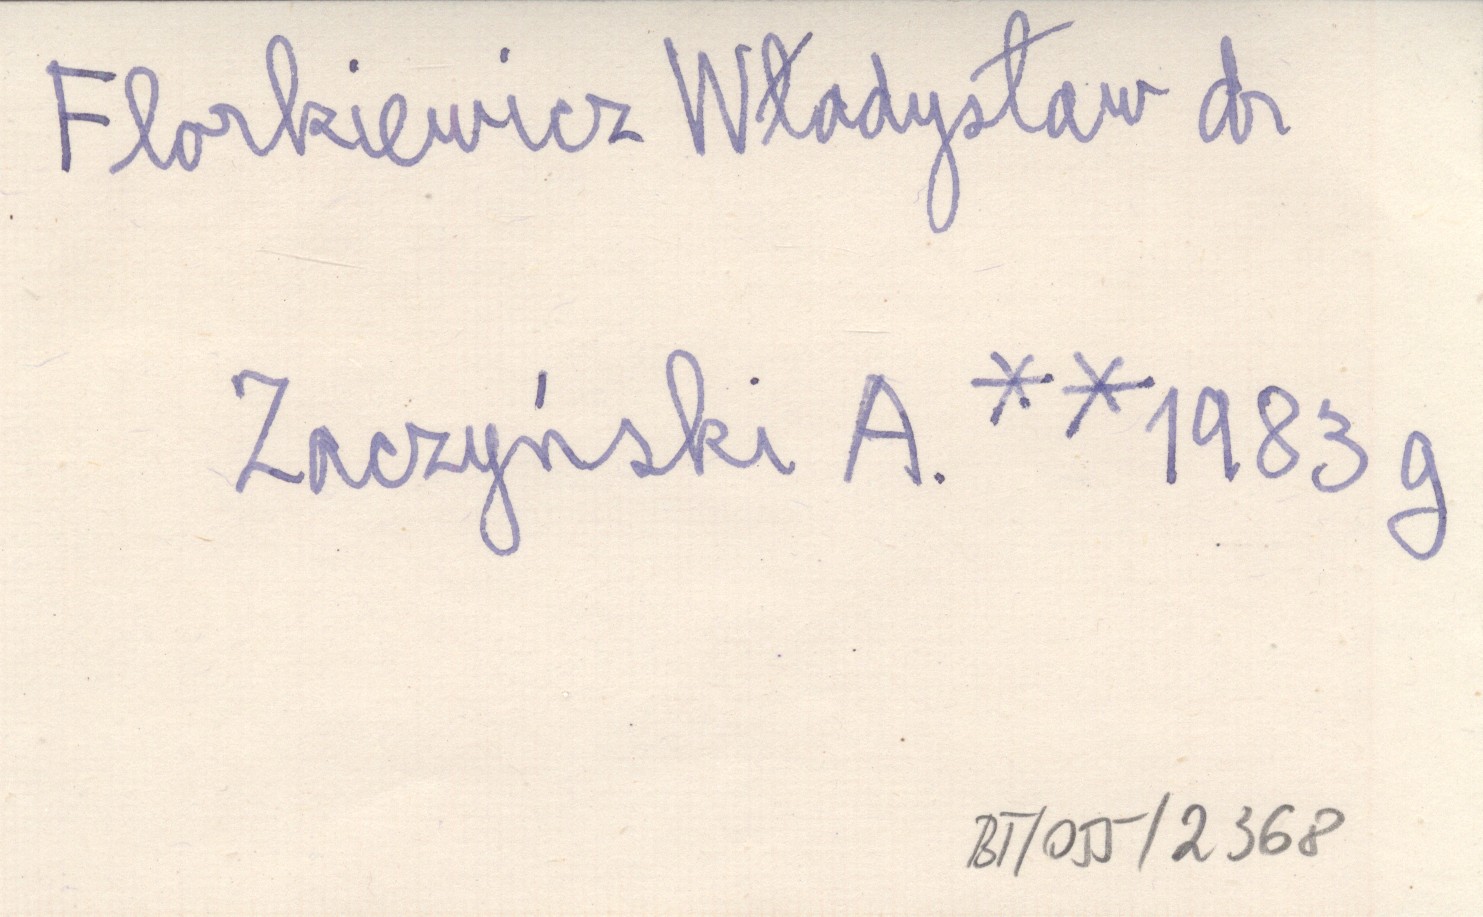 Florkiewicz Władysław dr
Zaczyński A. ** 1983 g
BT/055/2368